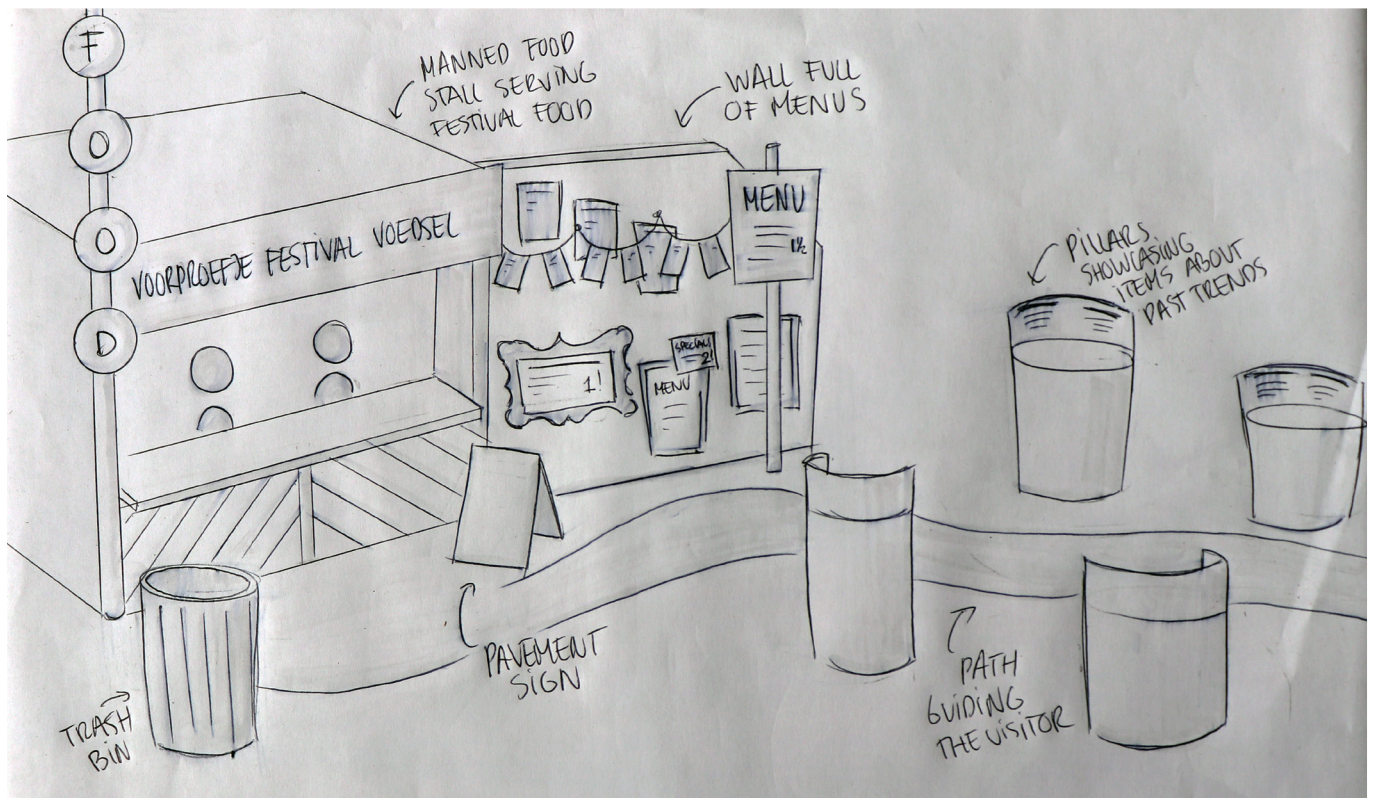 F
O
O
D
MANNED FOOD
STALL SERVING
FESTIVAL FOOD
WALL FULL
OF MENUS
VOORPROEFJE FESTIVAL VOEDSEL
MENU
1½
1!
SPECIALS
2!
MENU
PILLARS,
SHOWCASING
ITEMS ABOUT
PAST TRENDS
PAVEMENT
SIGN
TRASH
BIN
PATH
GUIDING
THE VISITOR